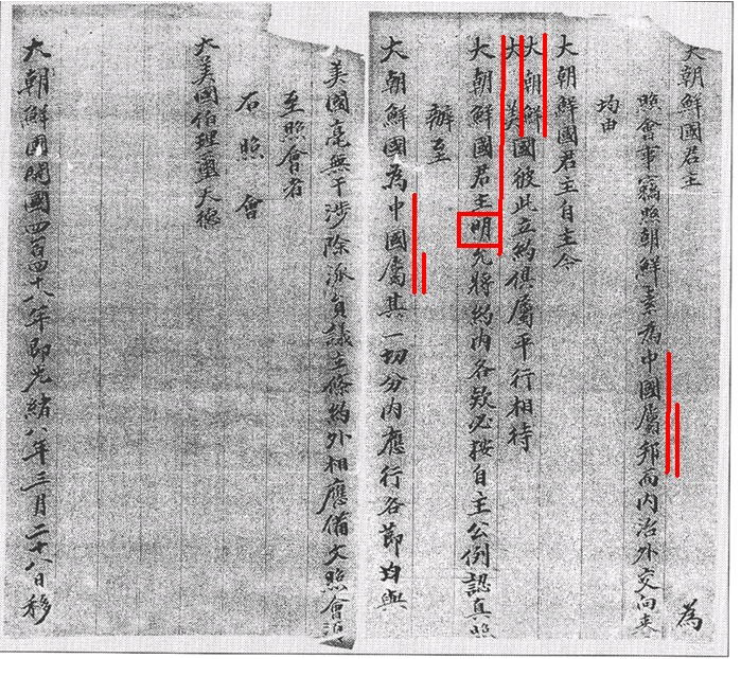 大朝鮮國君主 為
照會事竊照朝鮮素為中國屬邦而内治外交向來
均由
大朝鮮國君主自主今
大朝鮮
大美國彼此立約俱屬平行相待
大朝鮮國君主明允將約内各款必按自主公例認真照
辦至
大朝鮮國為中國屬其一切分内應行各節均與
美國毫無干涉除派員議立條約外相應備文照會
至照會者
右照會
大美國伯理璽天德
大朝鮮國開國四百四十八年即光緒八年三月二十八日移